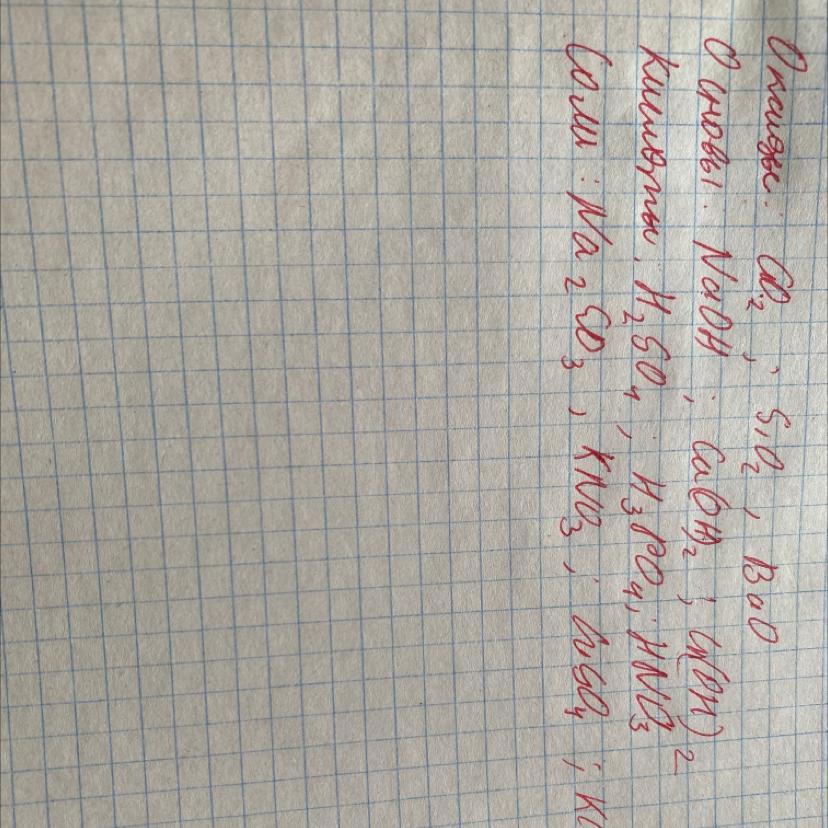 Оксиды: CO2; SiO2, BaO
Основы: NaOH; Ca(OH)2; Cu(OH)2
Кислоты: H2SO4; H3PO4; HNO3
Соли: Na2SO3, KNO3; CuSO4;